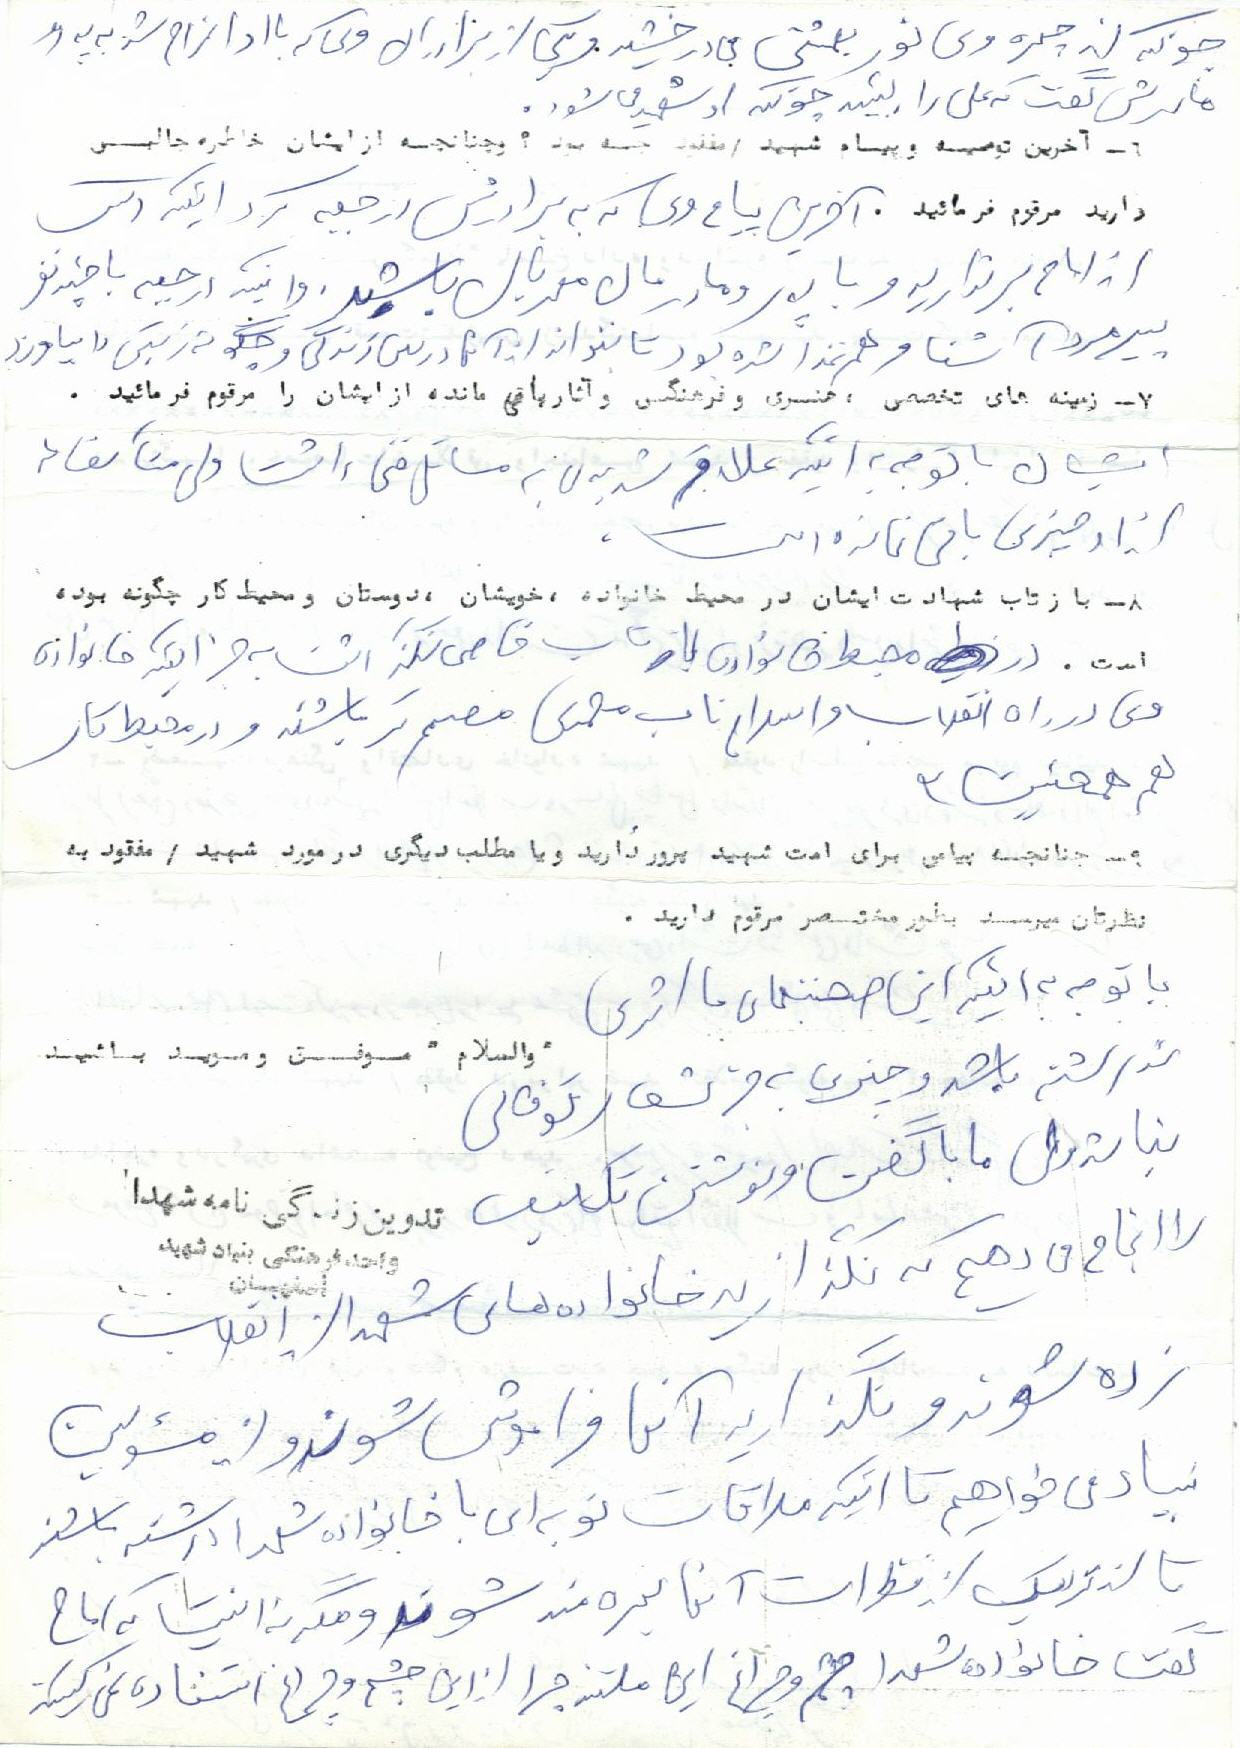 چونکه از چهره وی نور بهشتی می درخشید و یکی از برادران وی که با او اعزام شد به پدر و
مادرش گفت که علی را ببینید چونکه او شهید می شود.
٦- آخرین توصیه و پیام شهید / مفقود چه بود ؟ وچنانچه از ایشان خاطره جالبی
دارید مرقوم فرمائید . آخرین پیام وی که به برادرش در جبهه کرد اینکه دست
از امام برندارید و با پدر و مادرمان مهربان باشید . و اینکه در جبهه با چند نفر
پیرمرد آشنا و هم غذا شده بود تا بتواند از آنها درس زندگی و چگونه زیستن را بیاموزد
۷- زمینه های تخصصی ، هنری و فرهنگی و آثار باقی مانده از ایشان را مرقوم فرمائید .
ایشان با توجه به اینکه علاقه شدیدی به مسائل فنی داشت ولی متأسفانه
از او چیزی باقی نمانده است .
۸- باز تاب شهادت ایشان در محیط خانواده ، خویشان ، دوستان و محیط کار چگونه بوده
است . در محیط خانواده باز تاب خاصی نگذاشت به جز اینکه خانواده
وی در راه انقلاب و اسلام ناب محمدی مصمم تر باشند و در محیط کار
هم همچنین
۹- چنانچه پیامی برای امت شهید پرور دارید و یا مطلب دیگری در مورد شهید / مفقود به
نظرتان میرسد بطور مختصر مرقوم دارید .
با توجه به اینکه این صحبتهای ما اثری
" والسلام " موفق و موید باشید
نداشته باشد و چیزی به جز شعار تو خالی
نباشد ولی ما با گفتن و نوشتن تکلیف
تدوین زندگی نامه شهدا
واحد فرهنگی بنیاد شهید
اصفهان
را انجام می دهیم که نگذارید خانواده های شهدا از انقلاب
زده شوند و نگذارید آنها فراموش شوند و از مسئولین
بنیاد می خواهیم تا اینکه ملاقات نوبه ای با خانواده شهدا داشته باشند
تا از نزدیک از نظرات آنها بهره مند شوند و مگر نه اینست که امام
گفت خانواده شهدا چشم و چراغ این ملتند چرا از این چشم و چراغ استفاده نمی کنید